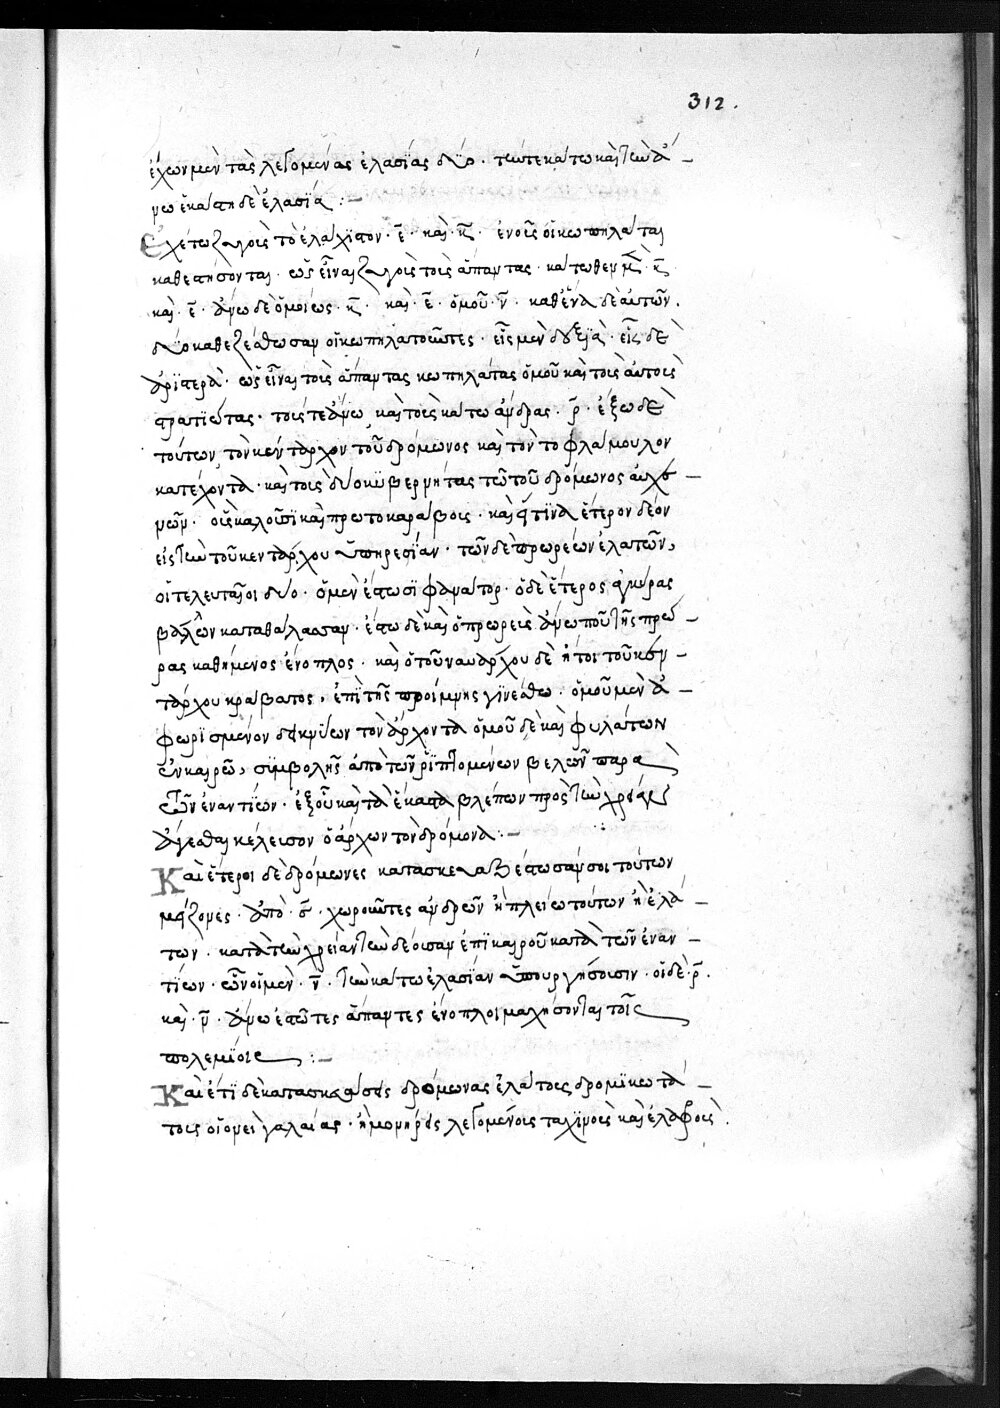 312.
ἐχων μὲν τὰς λεγομένας ἐλασΐας δύο. τήν τε κάτω καὶ τὴν ἄ
νω ἑκάστη δὲ ἐλασΐα :-
Ἐχέτω ζυγοὶς τὸ ἐλάχϊστον · ε̄ · καὶ · κ̄ · ἐν οἷς οἱ κωπηλάται
καθεστήσονται · ὡς εἶναι ζυγοὶς τοὶς ἅπαντας · κάτωθεν μὲν κ̄
καὶ · ε̄ · ἄνω δὲ ὁμοίως · κ̄ · καὶ · ε̄ · ὁμοῦ · ν̄ · καθ ἕνα δὲ αὐτῶν ·
δύο καθεζέσθωσαν οἱ κωπηλατοῦντες · εἷς μὲν δεξιὰ · εἷς δὲ
ἀρϊστερὰ · ὡς εἶναι τοὶς ἅπαντας κωπηλάτας ὁμοῦ καὶ τοὶς αὐτοὶς
στρατϊώτας · τοίς τε ἄνω, καὶ τοὶς κάτω ἄνδρας · ρ̄ · ἔξω δὲ
τούτων, τὸν κένταρχον τοῦ δρόμωνος καὶ τὸν τὸ φλάμουλον
κατέχοντα · καὶ τοὶς δύο κϋβερνήτας τῶν τοῦ δρόμωνος αὐχέ
νων · οἷς καλοῦσϊ καὶ πρωτοκαράβοις · καὶ εἴ τϊνα ἕτερον δέον
εἰς τὴν τοῦ κεντάρχου ὑπηρεσΐαν · τῶν δὲ πρωρέων ἐλατῶν,
οἱ τελευταῖοι δύο · ὁ μὲν ἔστω σϊφωνάτορ · ὁ δὲ ἕτερος ἀγκύρας
βάλλων κατὰ θάλασσαν · ἔστω δὲ καὶ ὁ πρωρεὶς ἄνω που τῆς πρώ
ρας καθήμενος ἔνοπλος · καὶ ὁ τοῦ ναυάρχου δὲ ἤτοι τοῦ κεν
τάρχου κράβατος, ἐπὶ τῆς προίμνης γϊνέσθω · ὁμοῦ μὲν ἀ
φωρϊσμένον δεικνΐων τὸν ἄρχοντα ὁμοῦ δὲ καὶ φυλάττων
ἐν καιρῶ, σϋμβολῆς ἀπὸ τῶν ῥϊπτομένων βελῶν παρὰ
τῶν ἐναντΐων · ἐξ οὗ καὶ τὰ ἕκαστα βλέπων πρὸς τὴν χρείαν
ἄγεσθαι κέλεισον ὁ ἄρχων τὸν δρόμονα :-
Καὶ ἕτεροι δὲ δρόμωνες κατασκευαζέστωσάν σοι τούτων
μείζονες · ἀπὸ · σ̄ · χωροῦντες ἀνδρῶν ἢ πλείω τούτων ἢ ἐλά
των · κατὰ τὴν χρείαν τὴν δέοισαν ἐπϊ καιροῦ κατὰ τῶν ἐναν
τΐων · ὧν οἱ μὲν · ν̄ · τὴν κάτω ἐλασϊαν ὑπουργήσοισιν · οἱ δὲ · ρ̄ ·
καὶ · ν̄ · ἄνω ἑστῶτες ἅπαντες ἔνοπλοι μαχήσονται τοῖς
πολεμΐοις :-
Καὶ ἔτϊ δὲ κατασκευάσεις δρόμωνας ἐλάττοις δρομϊκωτά
τοις οἱονεὶ γαλαίας · ἢ μονήρεις λεγομένοις ταχϊνοὶς καὶ ἐλαφροὶς ·